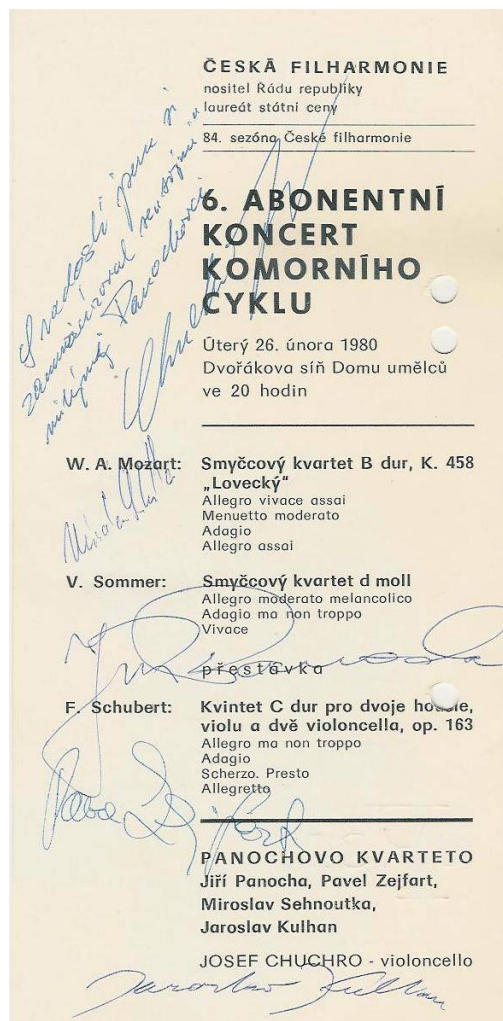 ČESKÁ FILHARMONIE
nositel Řádu republiky
laureát státní ceny
84. sezóna České filharmonie
6. ABONENTNÍ
KONCERT
KOMORNÍHO
CYKLU
Úterý 26. února 1980
Dvořákova síň Domu umělců
ve 20 hodin
S radostí jsem si
Panochovci
W. A. Mozart: Smyčcový kvartet B dur, K. 458
„Lovecký“
Allegro vivace assai
Menuetto moderato
Adagio
Allegro assai
V. Sommer: Smyčcový kvartet d moll
Allegro moderato melancolico
Adagio ma non troppo
Vivace
přestávka
F. Schubert: Kvintet C dur pro dvoje housle,
violu a dvě violoncella, op. 163
Allegro ma non troppo
Adagio
Scherzo. Presto
Allegretto
PANOCHOVO KVARTETO
Jiří Panocha, Pavel Zejfart,
Miroslav Sehnoutka,
Jaroslav Kulhan
JOSEF CHUCHRO - violoncello
Jaroslav Kulhan